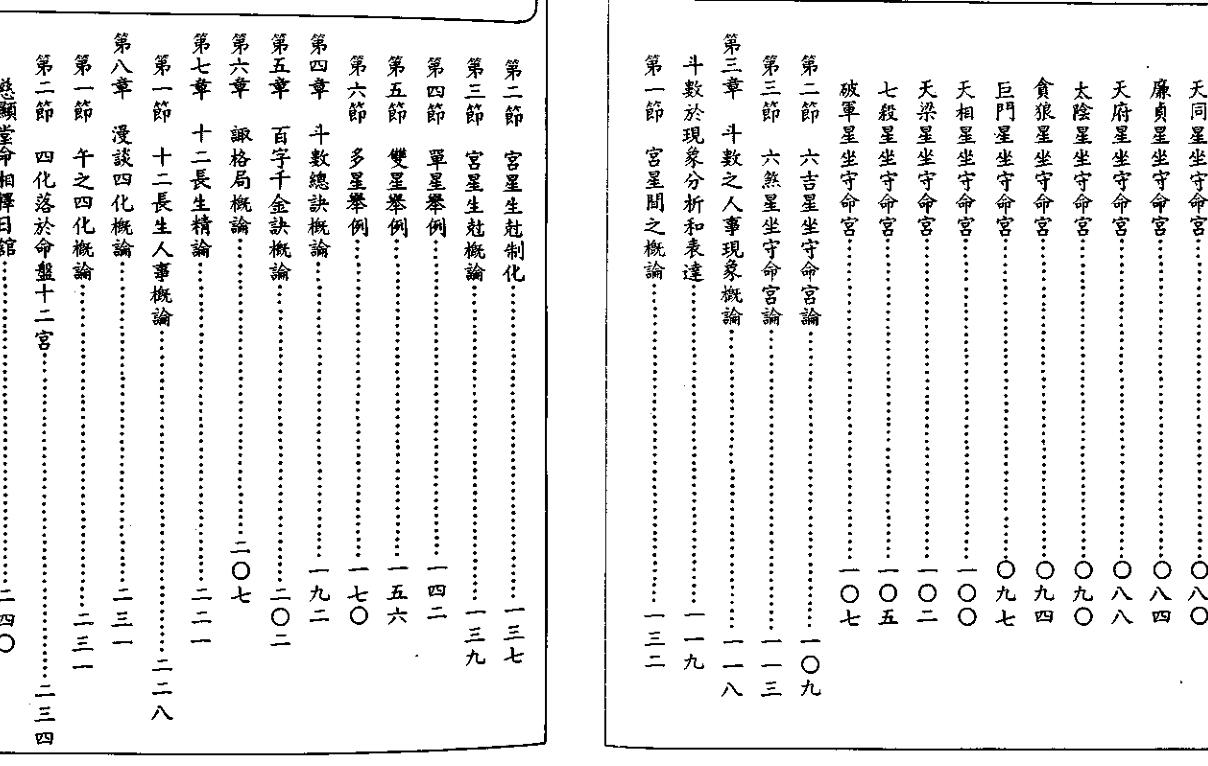 天同星坐守命宮……〇八〇
廉貞星坐守命宮……〇八四
天府星坐守命宮……〇八八
太陰星坐守命宮……〇九〇
貪狼星坐守命宮……〇九四
巨門星坐守命宮……〇九七
天相星坐守命宮……一〇〇
天梁星坐守命宮……一〇二
七殺星坐守命宮……一〇五
破軍星坐守命宮……一〇七
第二節 六吉星坐守命宮論……一〇九
第三節 六煞星坐守命宮論……一一三
第三章 斗數之人事現象概論……一一八
斗數於現象分析和表達……一一九
第一節 宮星間之概論……一三二
第二節 宮星生尅制化……一三七
第三節 宮星生尅概論……一三九
第四節 單星舉例……一四二
第五節 雙星舉例……一五六
第六節 多星舉例……一七〇
第四章 斗數總訣概論……一九二
第五章 百字千金訣概論……二〇二
第六章 諏格局概論……二〇七
第七章 十二長生精論……二二一
第一節 十二長生人事概論……二二八
第八章 漫談四化概論……二三一
第一節 午之四化概論……二三一
第二節 四化落於命盤十二宮……二三四
慈顯堂命相擇日舘……二四〇